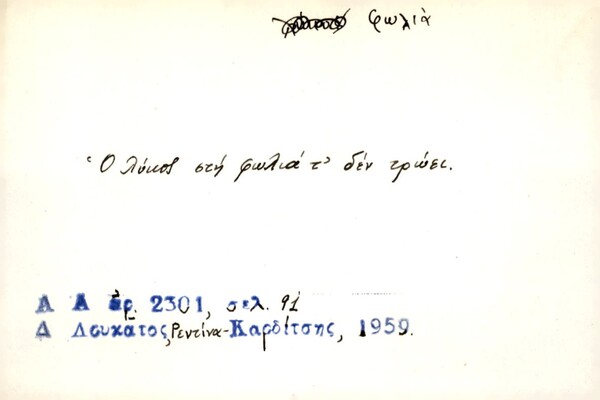 φωλιὰ
Ὁ λύκος στή φωλιά τ' δέν τρώει.
Λ Α ἀρ. 2301, σελ. 91
Δ Λουκᾶτος, Ρεντίνα-Καρδίτσης, 1959.